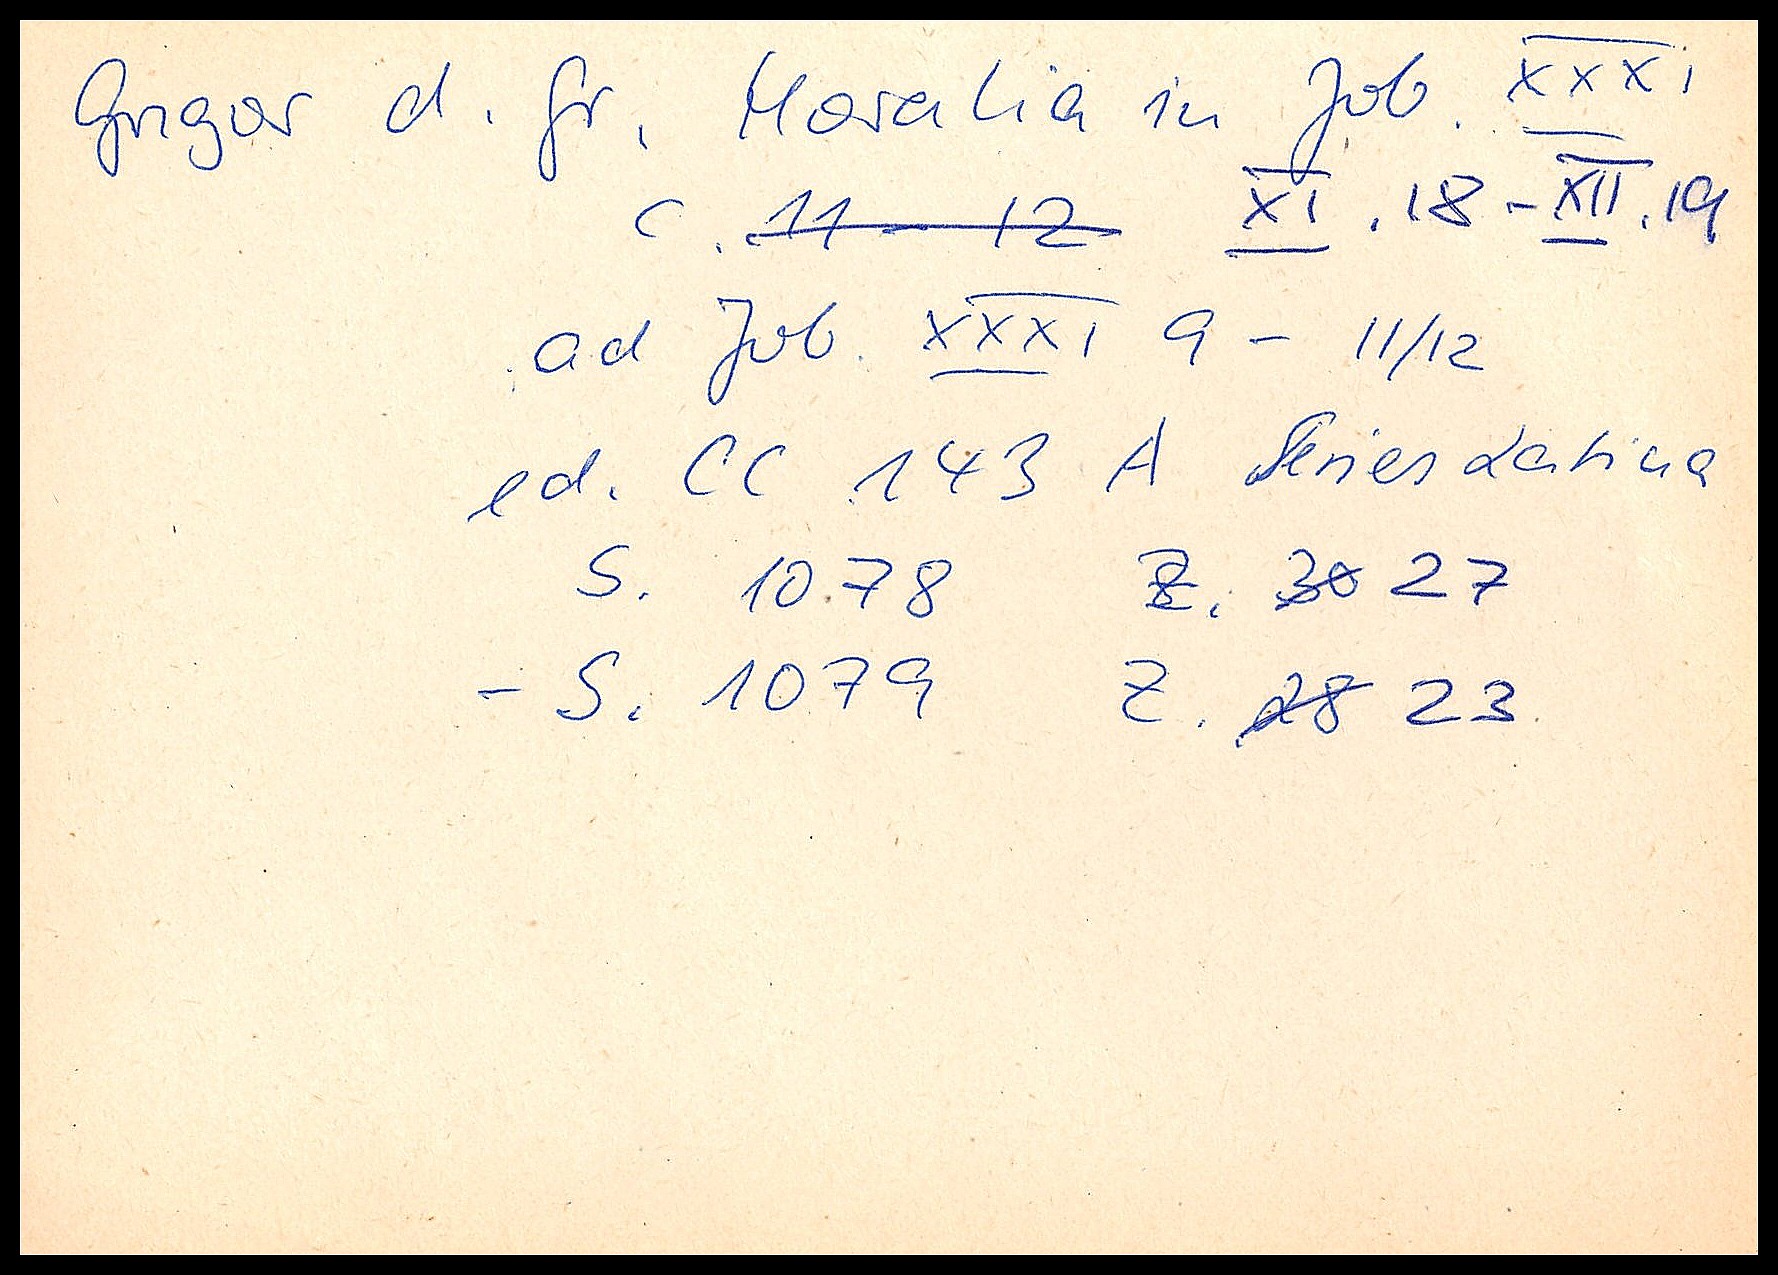 Gregor d. Gr. Moralia in Job. XXXI
c. 11 – 12 XI . 18 – XII . 19
ad Job. XXXI 9 – 11/12
ed. CC 143 A Series Latina
S. 1078 Z. 30 27
– S. 1079 Z. 28 23